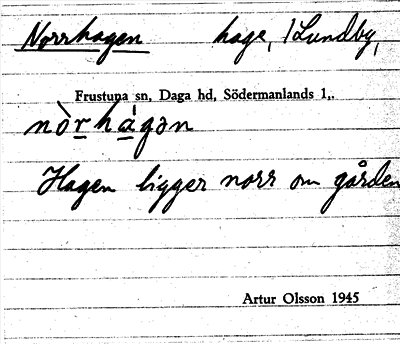 Norrhagen hage, 1 Lundby,
Frustuna sn, Daga hd, Södermanlands l,.
nòrhágən
Hagen ligger norr om gården
Artur Olsson 1945